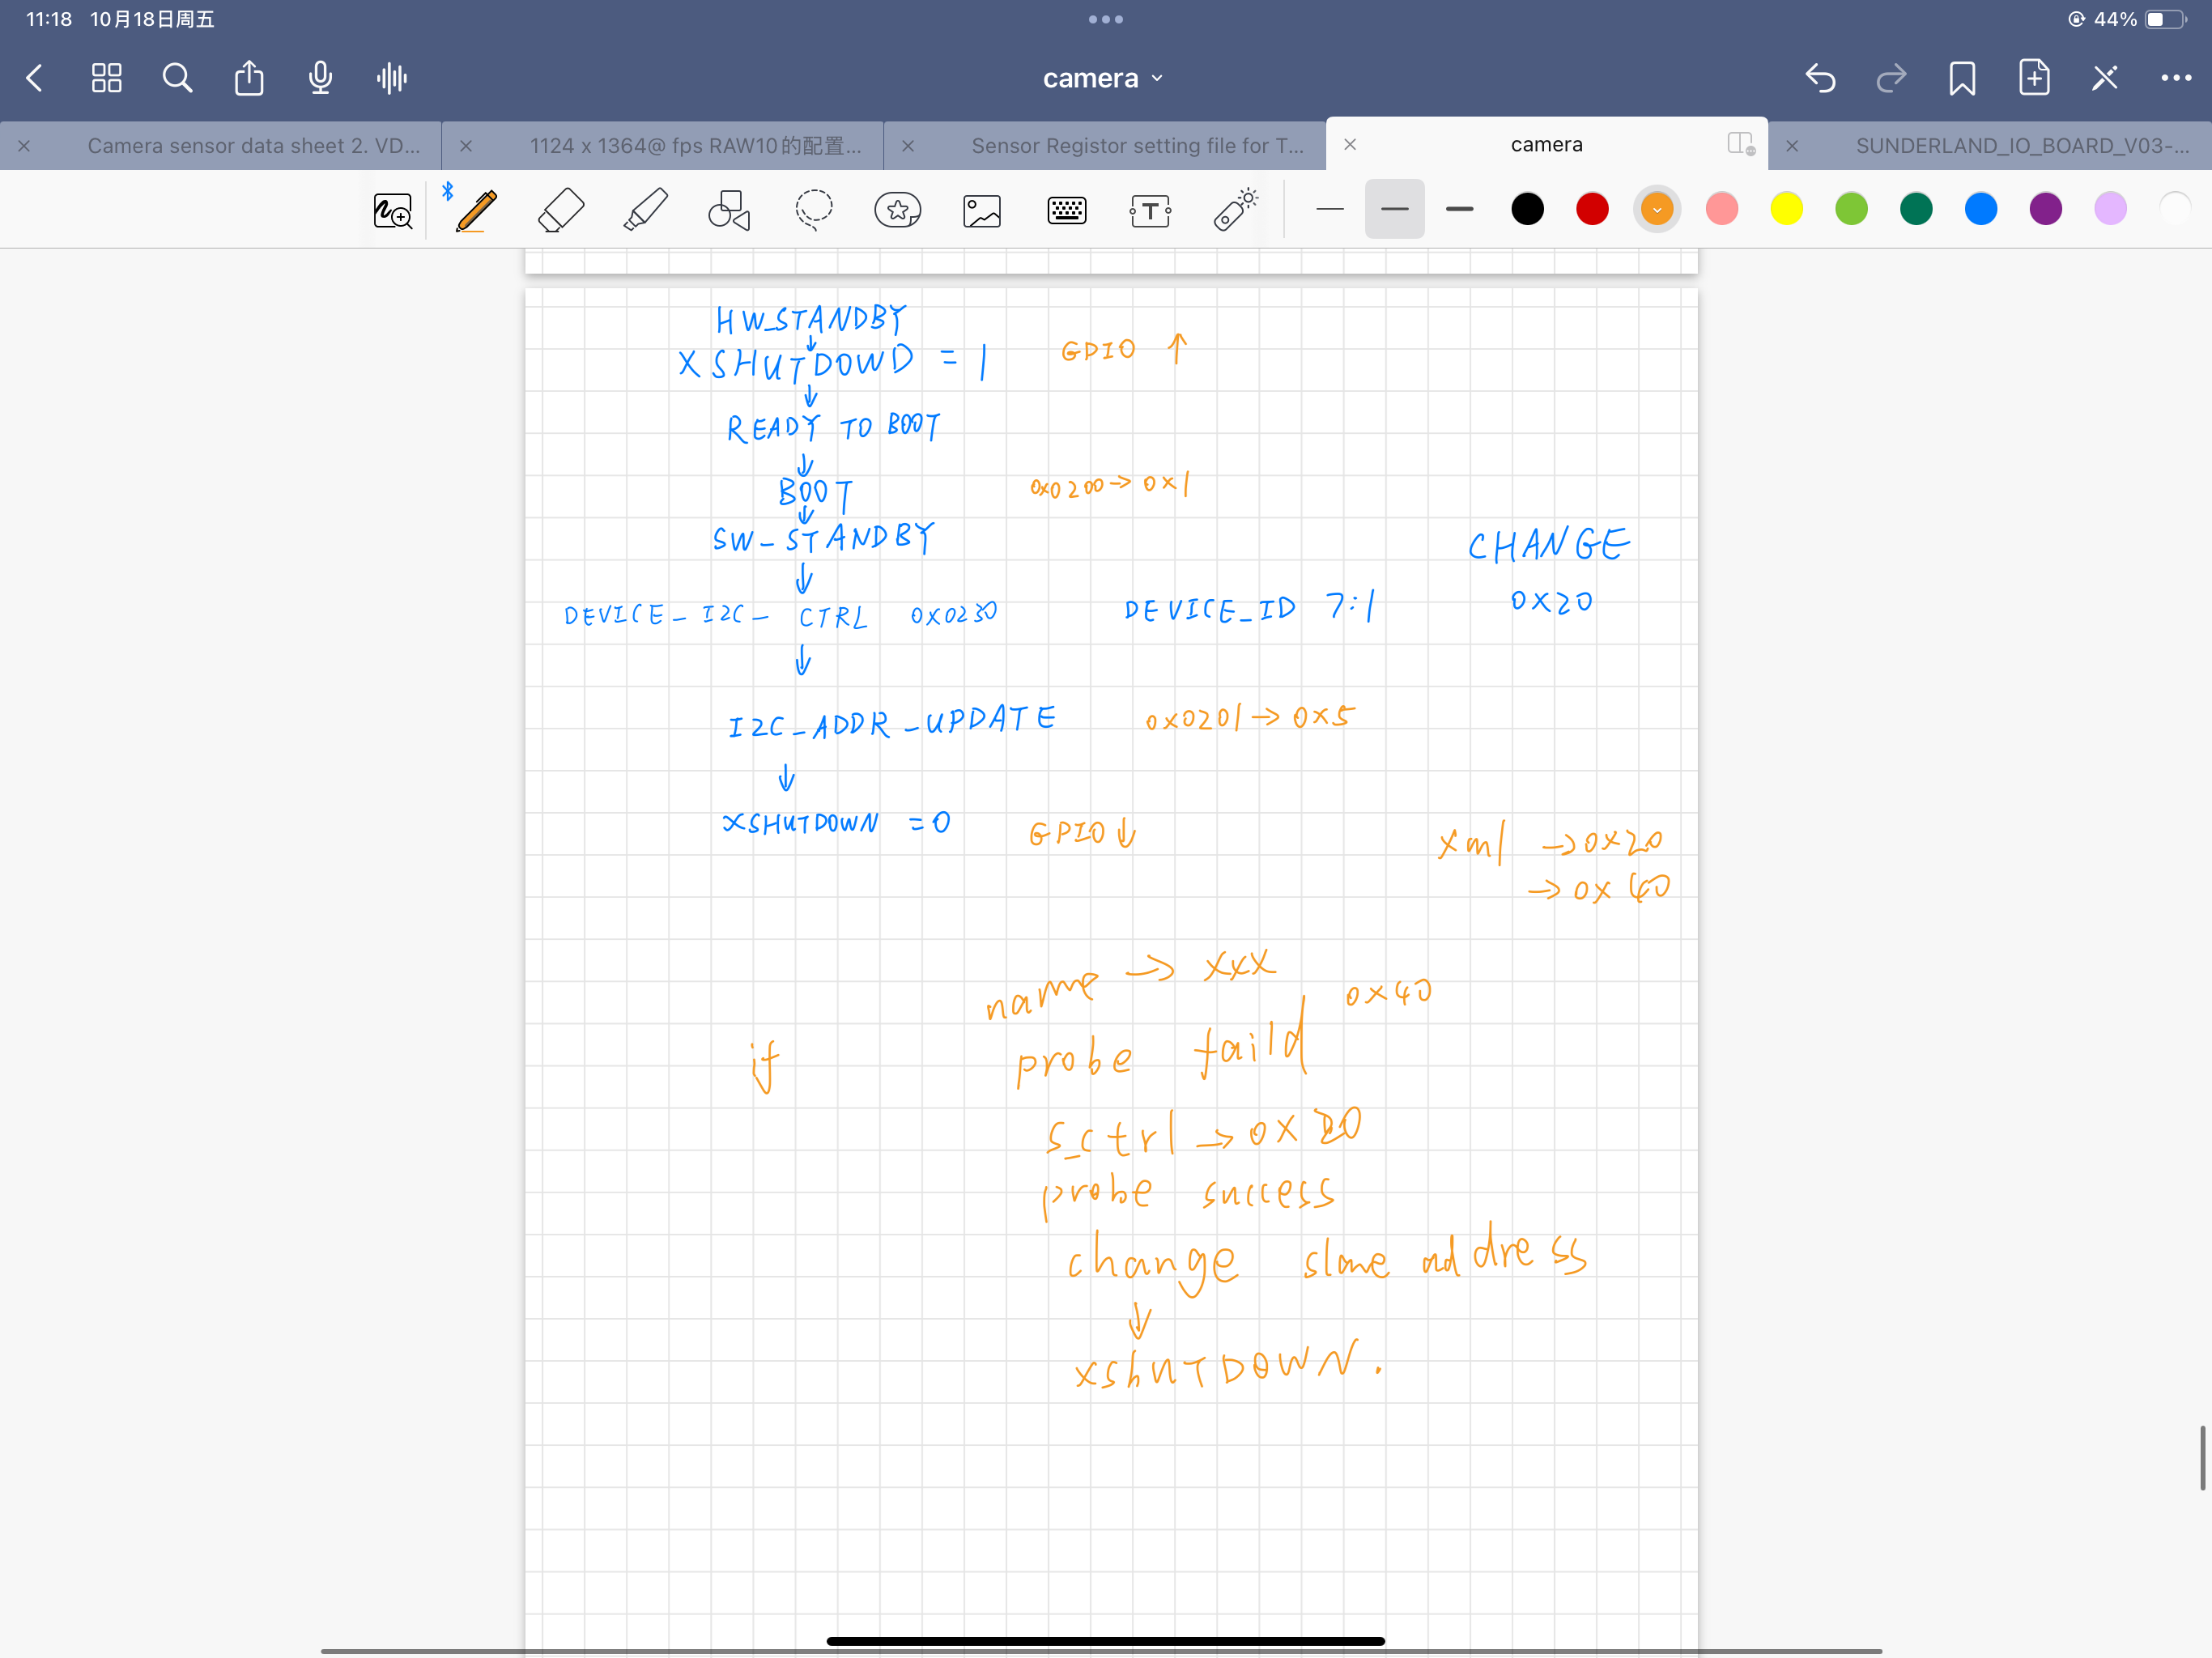 11:18 10月18日周五
44%
camera
Camera sensor data sheet 2. VD...
1124 x 1364@ fps RAW10的配置...
Sensor Registor setting file for T...
camera
SUNDERLAND_IO_BOARD_V03-...
HW_STANDBY
↓
XSHUTDOWD = 1 GPIO ↑
↓
READY TO BOOT
↓
BOOT 0x0200→0x1
↓
SW-STANDBY CHANGE
↓
DEVICE-I2C-CTRL 0x0230 DEVICE_ID 7:1 0x20
↓
I2C-ADDR-UPDATE 0x0201→0x5
↓
XSHUTDOWN =0 GPIO↓
xml →0x20
→0x40
name → xxx
0x40
if probe faild
s_ctrl→0x20
probe success
change slave address
↓
xshUTDOWN.